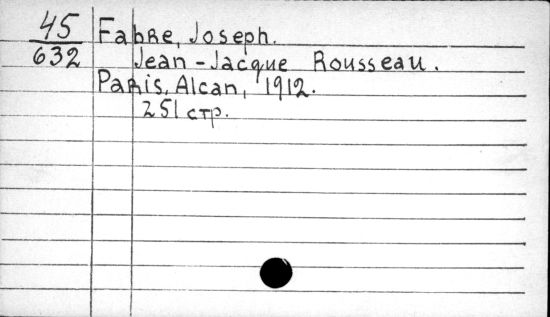 45 Fabre, Joseph.
632 Jean-Jacque Rousseau.
Paris, Alcan, 1912.
251 стр.